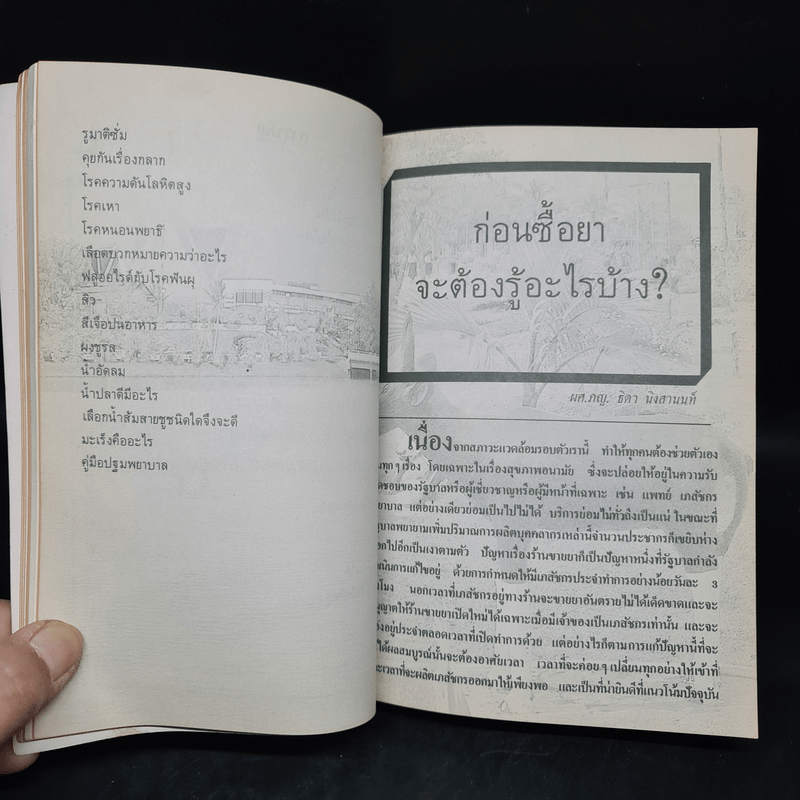 รูมาติซั่ม
คุยกันเรื่องกลาก
โรคความดันโลหิตสูง
โรคเหา
โรคหนอนพยาธิ
เลือดบวกหมายความว่าอะไร
ฟลูออไรด์กับโรคฟันผุ
สิว
สีเจือปนอาหาร
ผงชูรส
น้ำอัดลม
น้ำปลาดีมีอะไร
เลือกน้ำส้มสายชูชนิดใดจึงจะดี
มะเร็งคืออะไร
คู่มือปฐมพยาบาล
ก่อนซื้อยา
จะต้องรู้อะไรบ้าง?
ผศ.ภญ. ธิดา นิงสานนท์
เนื่องจากสภาวะแวดล้อมรอบตัวเรานี้ ทำให้ทุกคนต้องช่วยตัวเอง
นทุกๆเรื่อง โดยเฉพาะในเรื่องสุขภาพอนามัย ซึ่งจะปล่อยให้อยู่ในความรับ
ดชอบของรัฐบาลหรือผู้เชี่ยวชาญหรือผู้มีหน้าที่เฉพาะ เช่น แพทย์ เภสัชกร
ยาบาล แต่อย่างเดียวย่อมเป็นไปไม่ได้ บริการย่อมไม่ทั่วถึงเป็นแน่ ในขณะที่
ฐบาลพยายามเพิ่มปริมาณการผลิตบุคคลากรเหล่านี้จำนวนประชากรก็เขยิบห่าง
อกไปอีกเป็นเงาตามตัว ปัญหาเรื่องร้านขายยาก็เป็นปัญหาหนึ่งที่รัฐบาลกำลัง
เนินการแก้ไขอยู่ ด้วยการกำหนดให้มีเภสัชกรประจำทำการอย่างน้อยวันละ 3
โมง นอกเวลาที่เภสัชกรอยู่ทางร้านจะขายยาอันตรายไม่ได้เด็ดขาดและจะ
ญาตให้ร้านขายยาเปิดใหม่ได้เฉพาะเมื่อมีเจ้าของเป็นเภสัชกรเท่านั้น และจะ
องอยู่ประจำตลอดเวลาที่เปิดทำการด้วย แต่อย่างไรก็ตามการแก้ปัญหานี้ที่จะ
ได้ผลสมบูรณ์นั้นจะต้องอาศัยเวลา เวลาที่จะค่อยๆเปลี่ยนทุกอย่างให้เข้าที่
ะเวลาที่จะผลิตเภสัชกรออกมาให้เพียงพอ และเป็นที่น่ายินดีที่แนวโน้มปัจจุบัน